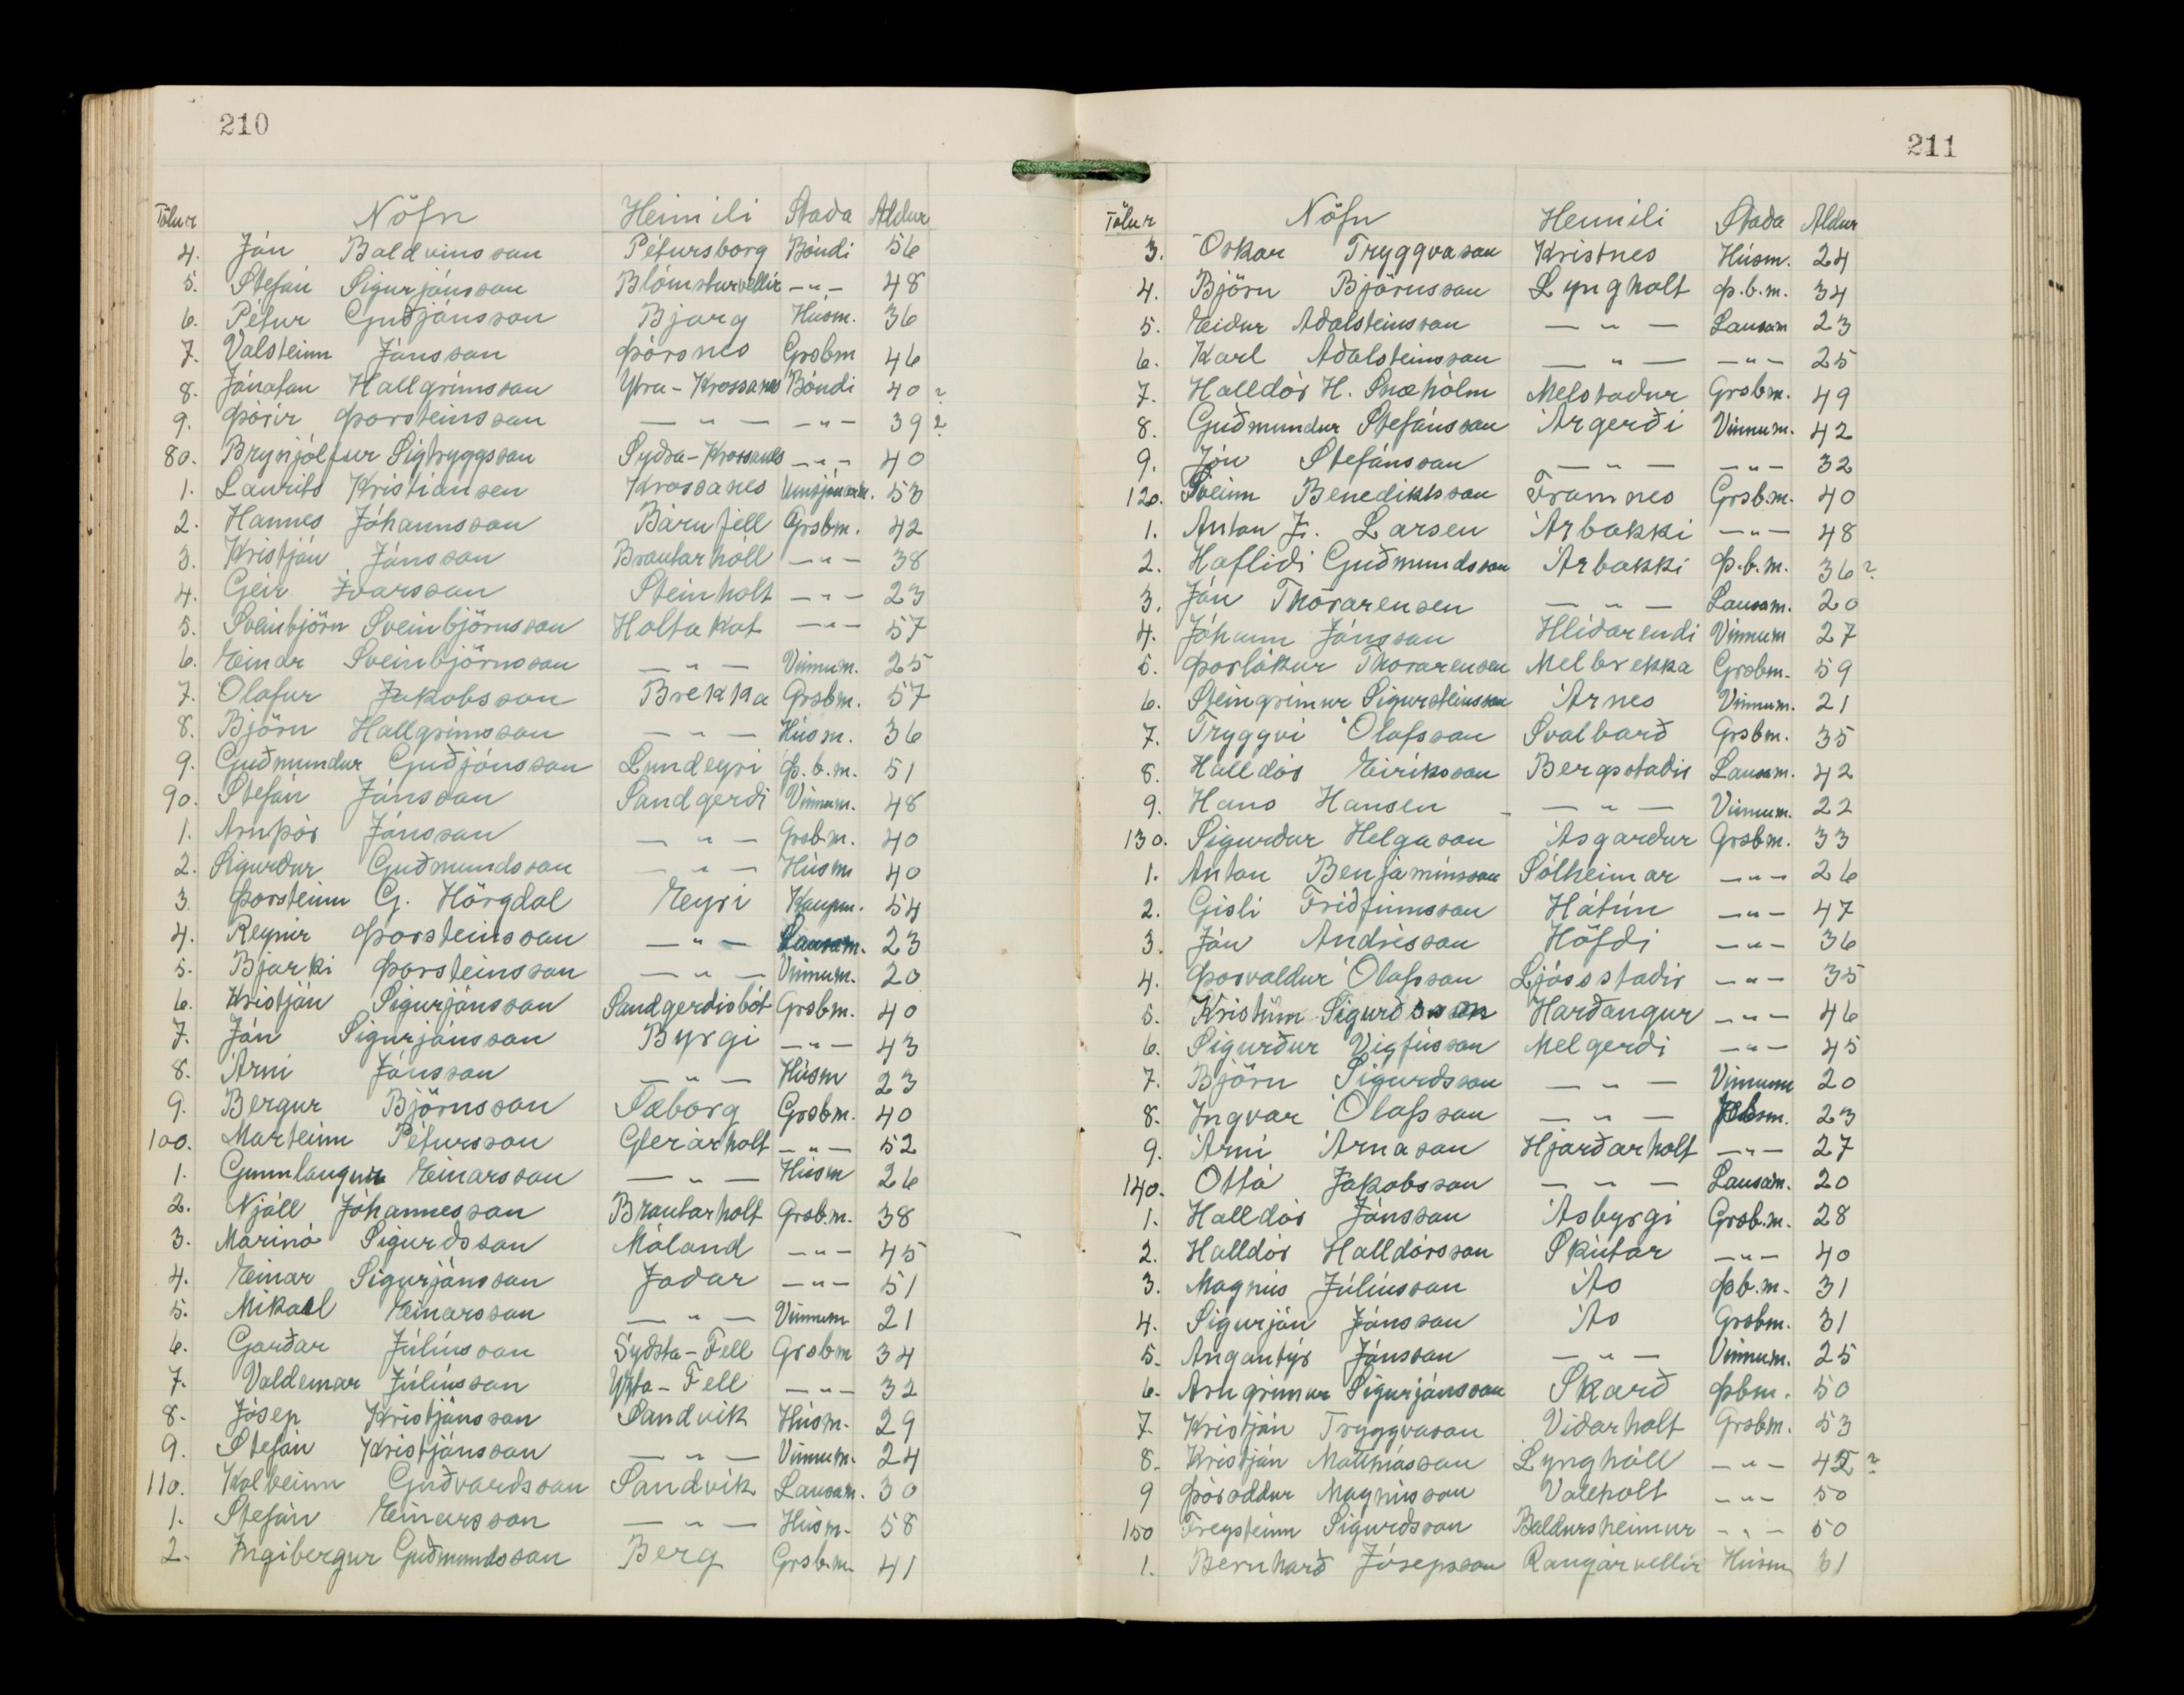 210
Tölur Nöfn Heimili Staða Aldur
4. Jón Baldvinsson Pétursborg Bóndi 56
5. Stefán Sigurjónsson Blómsturvellir -"- 48
6. Pétur Guðjónsson Bjarg Húsm. 36
7. Valsteinn Jónsson Þórsnes Grsbm 46
8. Jónatan Hallgrímsson Ytra-Krossanes Bóndi 40?
9. Þórir Þorsteinsson — " — -"- 39?
80. Brynjólfur Sigtryggsson Syðra-Krossanes -"- 40
1. Laurits Kristiansen Krossanes 53
2. Hannes Jóhannsson Bárufell Grsbm. 42
3. Kristján Jónsson Brautarhóll -"- 38
4. Geir Ívarsson Steinholt -"- 23
5. Sveinbjörn Sveinbjörnsson Holtakot -"- 57
6. Einar Sveinbjörnsson — " — Vinnum. 25
7. Ólafur Jakobsson Brekka Grsbm. 57
8. Björn Hallgrímsson — " — Húsm. 36
9. Guðmundur Guðjónsson Lundeyri Þ.b.m. 51
90. Stefán Jónsson Sandgerði Vinnum. 48
1. Arnþór Jónsson — " — Grsb.m. 40
2. Sigurður Guðmundsson — " — Húsm 40
3. Þorsteinn G. Hörgdal Eyri Kaupm. 54
4. Reynir Þorsteinsson — " — Lausam. 23
5. Bjarki Þorsteinsson — " — Vinnum. 20
6. Kristján Sigurjónsson Sandgerðisbót Grsbm. 40
7. Jón Sigurjónsson Byrgi -"- 43
8. Árni Jónsson — " — Húsm 23
9. Bergur Björnsson Sæborg Grsbm. 40
100. Marteinn Pétursson Glerárholt -"- 52
1. Gunnlaugur Einarsson — " — Húsm 26
2. Njáll Jóhannesson Brautarholt Grsb.m. 38
3. Marinó Sigurðsson Móland -"- 45
4. Einar Sigurjónsson Jaðar -"- 51
5. Mikael Einarsson — " — Vinnum 21
6. Garðar Júlíusson Syðsta-Fell Grsbm 34
7. Valdemar Júlíusson Yzta-Fell -"- 32
8. Jósep Kristjánsson Sandvík Húsm. 29
9. Stefán Kristjánsson — " — Vinnum. 24
110. Kolbeinn Guðvarðsson Sandvík Lausam. 30
1. Stefán Einarsson — " — Húsm. 58
2. Ingibergur Guðmundsson Berg Grsb.m. 41
211
Tölur Nöfn Heimili Staða Aldur
3. Óskar Tryggvason Kristnes Húsm. 24
4. Björn Björnsson Lyngholt Þ.b.m. 34
5. Eiður Aðalsteinsson — " — Lausam 23
6. Karl Aðalsteinsson — " — -"- 25
7. Halldór H. Snæhólm Melstaður Grsbm. 49
8. Guðmundur Stefánsson Árgerði Vinnum. 42
9. Jón Stefánsson — " — -"- 32
120. Sveinn Benediktsson Framnes Grsb.m. 40
1. Anton J. Larsen Árbakki -"- 48
2. Hafliði Guðmundsson Árbakki Þ.b.m. 36?
3. Jón Thorarensen — " — Lausam. 20
4. Jóhann Jónsson Hlíðarendi Vinnum 27
5. Þorlákur Thorarensen Melbrekka Grsbm. 59
6. Steingrímur Sigursteinsson Árnes Vinnum. 21
7. Tryggvi Ólafsson Svalbarð Grsbm. 35
8. Halldór Eiríksson Bergsstaðir Lausam. 42
9. Hans Hansen — " — Vinnum. 22
130. Sigurður Helgason Ásgarður Grsbm. 33
1. Anton Benjamínsson Sólheimar -"- 26
2. Gísli Friðfinnsson Hátún -"- 47
3. Jón Andrésson Höfði -"- 36
4. Þorvaldur Ólafsson Ljósstaðir -"- 35
5. Kristinn Sigurðsson Harðangur -"- 46
6. Sigurður Vigfússon Melgerði -"- 45
7. Björn Sigurðsson — " — Vinnum 20
8. Ingvar Ólafsson — " — 23
9. Árni Árnason Hjarðarholt -"- 27
140. Ottó Jakobsson — " — Lausam. 20
1. Halldór Jónsson Ásbyrgi Grsb.m. 28
2. Halldór Halldórsson Skútar -"- 40
3. Magnús Júlíusson Ás Þb.m. 31
4. Sigurjón Jónsson Ás Grsbm. 31
5. Angantýr Jónsson — " — Vinnum. 25
6. Arngrímur Sigurjónsson Skarð Þbm. 50
7. Kristján Tryggvason Viðarholt Grsbm. 53
8. Kristján Matthíasson Lynghóll -"- 45?
9 Þóroddur Magnússon Vallholt -"- 50
150 Freysteinn Sigurðsson Baldursheimur -"- 50
1. Bernharð Jósepsson Rangárvellir Húsm 31